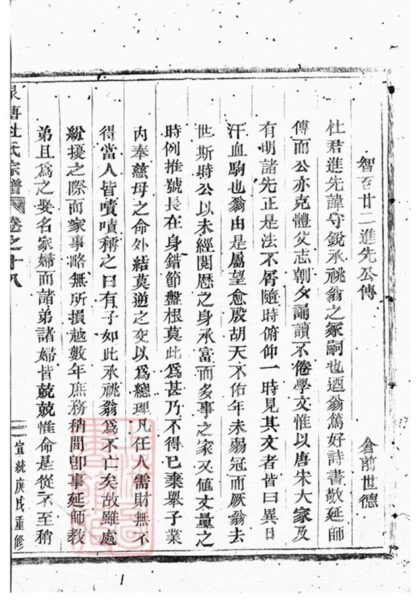 智百廿二進先公傳
倉前世德
杜君進先諱守銳承祧翁之冢嗣也迺翁篤好詩書敬延師
傅而公亦克體父志朝夕誦讀不倦學文惟以唐宋大家及
有明諸先正是法不屑隨時俯仰一時見其文者皆曰異日
汗血駒也翁由是屬望愈殷胡天不佑年未弱冠而厥翁去
世斯時公以未經閱歷之身承當而多事之家又值丈量之
時例推號長在身錯節盤根莫此爲甚乃不得已棄舉子業
內奉慈母之命外結莫逆之交以爲總理凡任人需財無不
得當人皆嘖嘖稱之曰有子如此承祧翁爲不亡矣故雖處
紛擾之際而家事略無所損越數年庶務稍間卽事延師教
弟且爲之娶名家婦而諸弟諸婦皆兢兢惟命是從不至稍
杜氏宗譜
卷之十八
宣統庚戌重修